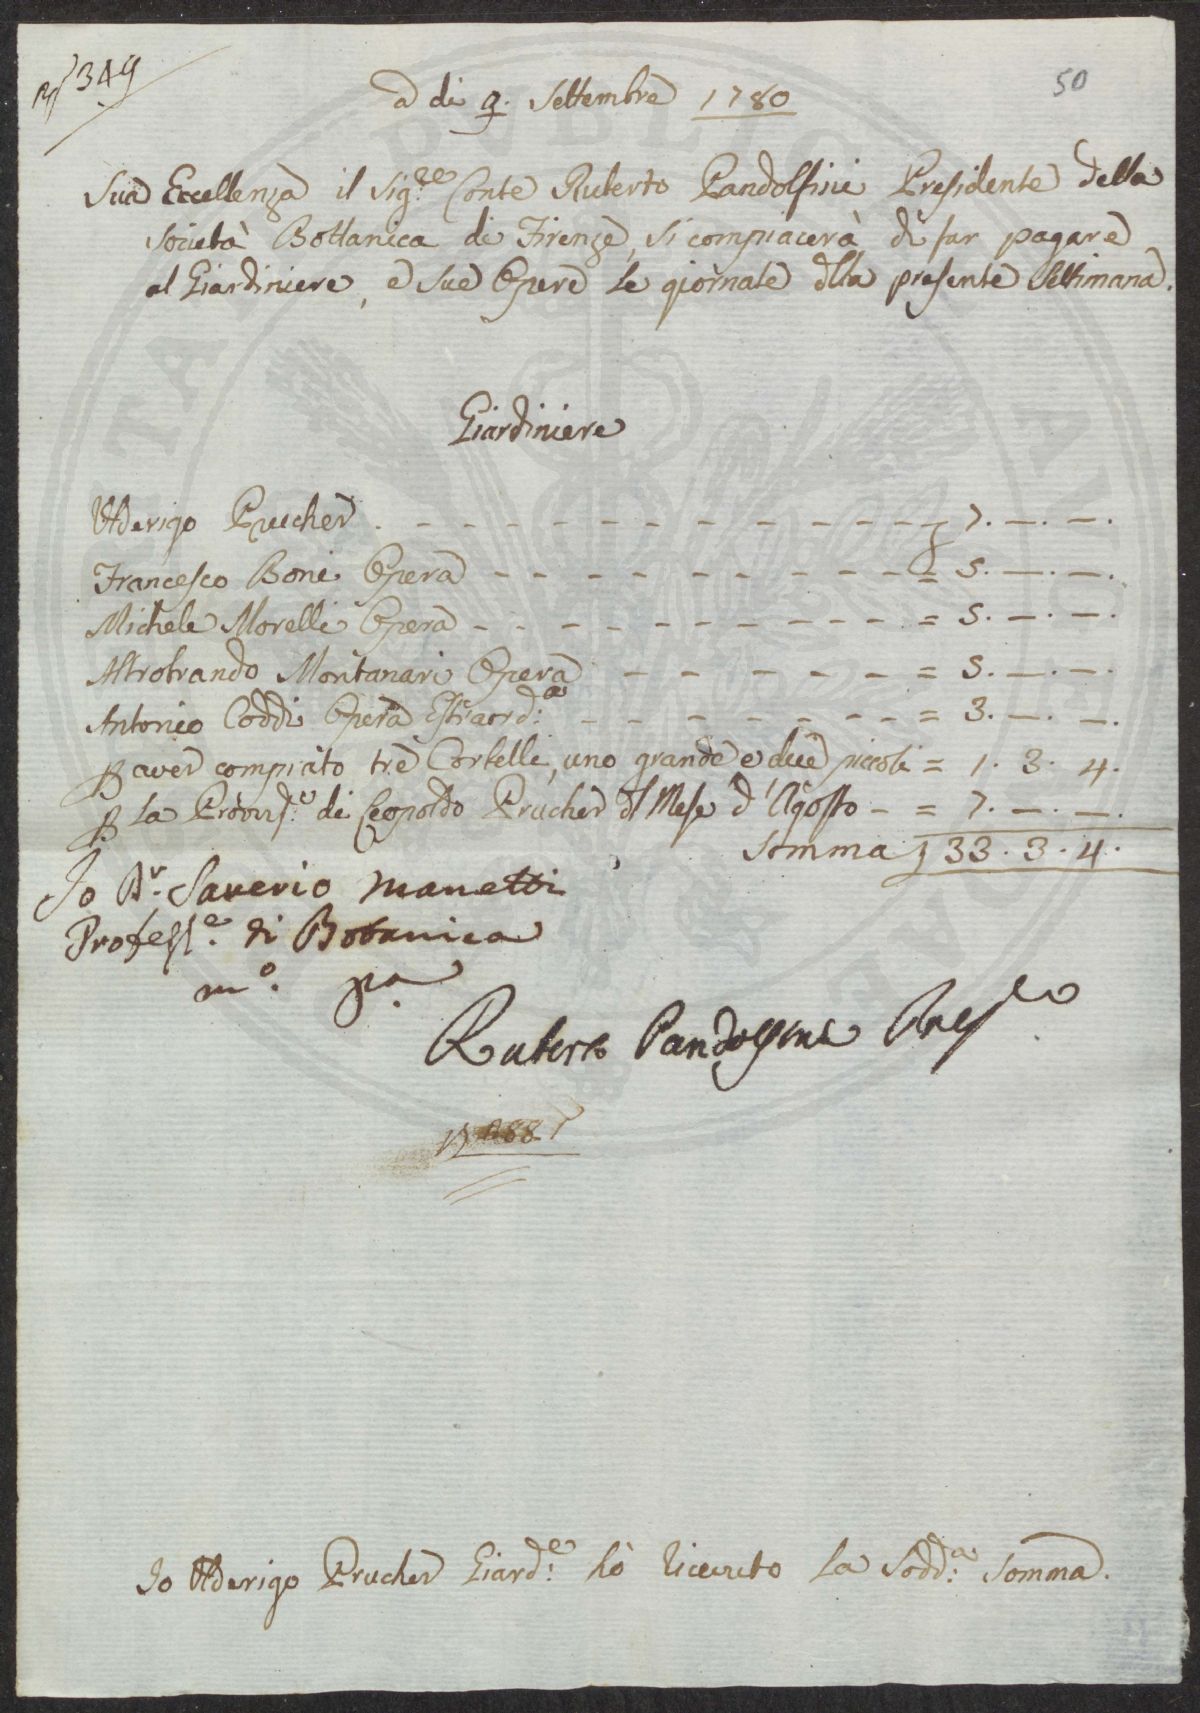 N 349
50
a di 9. Settembre 1780
Sua Eccellenza il Sig.re Conte Ruberto Pandolfini Presidente della
Società Bottanica di Firenze, si compiacerà di far pagare
al Giardiniere, e sue Opere le giornate dlla presente Settimana.
Giardiniere
Uderigo Prucher . - - - - - - - - - - - - £ 7. —. —.
Francesco Boni Opera - - - - - - - - - - = 5. —. —.
Michele Morelli Opera - - - - - - - - - - = 5. —. —.
Altobrando Montanari Opera - - - - - - = 5. —. —.
Antonio Coddi Opera Estraord:a - - - - - - - = 3. —. —.
P aver comprato tre Cortelli, uno grande e due piccoli = 1. 3. 4.
P la Provis:e di Leopoldo Prucher dl Mese d'Agosto - = 7. —. —.
Somma £ 33. 3. 4.
Io Dr. Saverio Manetti
Profess.e di Botanica
m.o pa.
Ruberto Pandolfini Pres.e
Io Uderigo Prucher Giard:e hò riceuto la Sodd:a Somma.